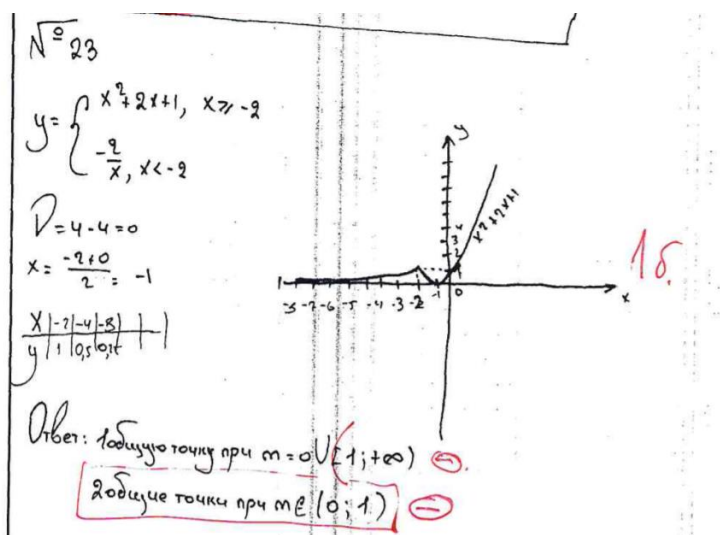 № 23
y = { x²+2x+1, x ≥ -2
-2/x, x < -2
D = 4-4 = 0
x = (-2+0)/2 = -1
x | -2 | -4 | -8 |
y | 1 | 0,5 | 0,25
y
x²+2x+1
4
3
2
-8 -7 -6 -5 -4 -3 -2 -1 0
x
1б.
Ответ: 1 общую точку при m = 0 ∪ (1; +∞)
2 общие точки при m ∈ (0; 1)